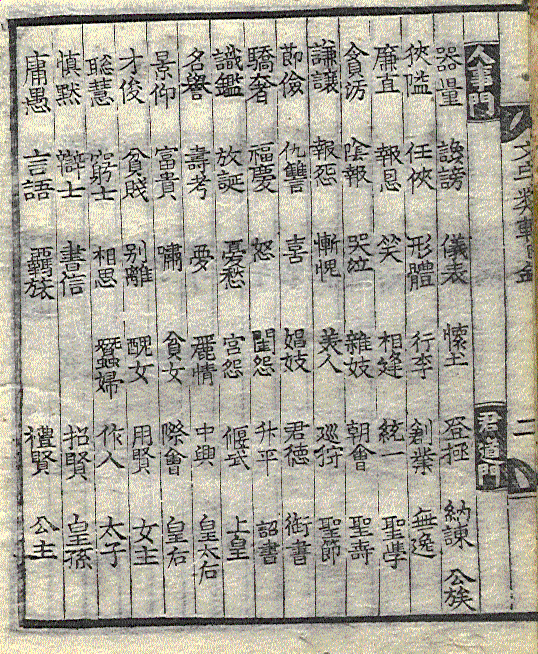 文字類輯目 二
人事門 君道門
器量 謗 儀表 懷土 登極 納諫 公族
俠隘 任俠 形體 行李 創業 無逸
廉直 報恩 笑 相逢 統一 聖學
貪汚 陰報 哭泣 雜妓 朝會 聖壽
謙讓 報怨 慚愧 美人 巡狩 聖節
節儉 仇讐 喜 娼妓 君德 書
驕奢 福慶 怒 閨怨 升平 詔書
識鑑 放誕 憂愁 宮怨 偃武 上皇
名譽 壽考 夢 麗情 中興 皇太后
景仰 富貴 嘯 貧女 際會 皇后
才俊 貧賤 别離 醜女 用賢 女主
聰慧 窮士 相思 蠶婦 作人 太子
愼默 士 書信 招賢 皇孫
庸愚 言語 羈旅 禮賢 公主